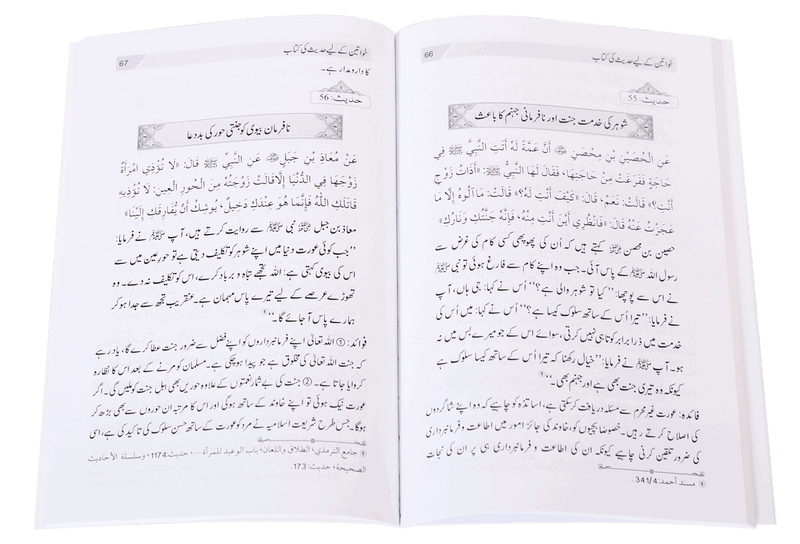 66
خواتین کے لیے حدیث کی کتاب
حدیث: 55
شوہر کی خدمت جنت اور نافرمانی جہنم کا باعث
عَنِ الْحُصَيْنِ بْنِ مِحْصَنٍ ﷺ أَنَّ عَمَّةً لَهُ أَتَتِ النَّبِيَّ ﷺ فِي
حَاجَةٍ فَفَرَغَتْ مِنْ حَاجَتِهَا، فَقَالَ لَهَا النَّبِيُّ ﷺ: «أَذَاتُ زَوْجٍ
أَنْتِ؟» قَالَتْ: نَعَمْ، قَالَ: «كَيْفَ أَنْتِ لَهُ؟» قَالَتْ: مَا آلُوهُ إِلَّا مَا
عَجَزْتُ عَنْهُ قَالَ: «فَانْظُرِي أَيْنَ أَنْتِ مِنْهُ، فَإِنَّهُ جَنَّتُكِ وَنَارُكِ»
حصین بن محصن کہتے ہیں کہ اُن کی پھوپھی کسی کام کی غرض سے
رسول اللہ ﷺ کے پاس آئی۔ جب وہ اپنے کام سے فارغ ہوئی تو نبی ﷺ
نے اس سے پوچھا: ’’کیا تو شوہر والی ہے؟‘‘ اُس نے کہا: جی ہاں، آپ
نے فرمایا: ’’تیرا اُس کے ساتھ سلوک کیسا ہے؟‘‘ اُس نے کہا: میں اُس کی
خدمت میں ذرا برابر کوتاہی نہیں کرتی، سوائے اس کے جو میرے بس میں نہ
ہو۔ آپ ﷺ نے فرمایا: ’’خیال رکھنا کہ تیرا اُس کے ساتھ کیسا سلوک ہے
کیونکہ وہ تیری جنت بھی ہے اور جہنم بھی۔‘‘
فائدہ: عورت غیر محرم سے مسئلہ دریافت کر سکتی ہے، اساتذہ کو چاہیے کہ وہ اپنے شاگردوں
کی اصلاح کرتے رہیں۔ خصوصاً بچیوں کو، خاوند کی جائز امور میں اطاعت و فرمانبرداری
کی ضرور تلقین کرنی چاہیے کیونکہ ان کی اطاعت و فرمانبرداری ہی پر ان کی نجات
① مسند أحمد: 341/4.
67
خواتین کے لیے حدیث کی کتاب
کا دار و مدار ہے۔
حدیث: 56
نافرمان بیوی کو جنتی حور کی بددعا
عَنْ مُعَاذِ بْنِ جَبَلٍ عَنِ النَّبِيِّ ﷺ قَالَ: «لَا تُؤْذِي امْرَأَةٌ
زَوْجَهَا فِي الدُّنْيَا إِلَّا قَالَتْ زَوْجَتُهُ مِنَ الْحُورِ الْعِينِ: لَا تُؤْذِيهِ
قَاتَلَكِ اللَّهُ فَإِنَّمَا هُوَ عِنْدَكِ دَخِيلٌ، يُوشِكُ أَنْ يُفَارِقَكِ إِلَيْنَا»
معاذ بن جبل نبی ﷺ سے روایت کرتے ہیں، آپ ﷺ نے فرمایا:
’’جب کوئی عورت دنیا میں اپنے شوہر کو تکلیف دیتی ہے تو حور عین میں سے
اس کی بیوی کہتی ہے: اللہ تجھے تباہ و برباد کرے، اس کو تکلیف نہ دے۔ وہ
تھوڑے عرصے کے لیے تیرے پاس مہمان ہے۔ عنقریب تجھ سے جدا ہو کر
ہمارے پاس آ جائے گا۔‘‘①
فوائد: ① اللہ تعالیٰ اپنے فرمانبرداروں کو اپنے فضل سے ضرور جنت عطا کرے گا، یاد رہے
کہ جنت اللہ تعالیٰ کی مخلوق ہے جو پیدا ہو چکی ہے۔ مسلمان کو مرنے کے بعد اس کا نظارہ
کروایا جاتا ہے۔ ② جنت کی بے شمار نعمتوں کے علاوہ حوریں بھی اہل جنت کو ملیں گی۔ اگر
عورت نیک ہوئی تو اپنے خاوند کے ساتھ ہوگی اور اس کا مرتبہ ان حوروں سے بھی بڑھ کر
ہوگا۔ جس طرح شریعت اسلامیہ نے مرد کو عورت کے ساتھ حسن سلوک کی تاکید کی ہے، اسی
① جامع الترمذي، الطلاق واللعان، باب الوعيد للمرأة....، حديث: 1174، وسلسلة الأحاديث
الصحيحة، حديث: 173.